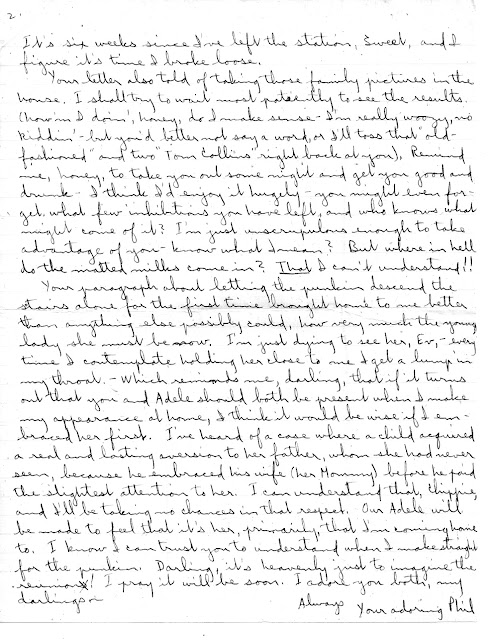 2.
It's six weeks since I've left the station, Sweet, and I
figure it's time I broke loose.
Your letter also told of taking those family pictures in the
house. I shall try to wait most patiently to see the results.
(how'm I doin', honey, do I make sense - I'm really woozy, no
kiddin' - but you'd better not say a word, or I'll toss that "old-
fashioned" and two "Tom Collins' right back at you). Remind
me, honey, to take you out some night and get you good and
drunk - I think I'd enjoy it hugely - you might even for-
get what few inhibitions you have left, and who knows what
might come of it? I'm just unscrupulous enough to take
advantage of you - know what I mean? But where in hell
do the malted milks come in? That I can't understand!!
Your paragraph about letting the punkin descend the
stairs alone for the first time brought home to me better
than anything else possibly could, how very much the young
lady she must be now. I'm just dying to see her, Ev, - every
time I contemplate holding her close to me I get a lump in
my throat. - Which reminds me, darling, that if it turns
out that you and Adele should both be present when I make
my appearance at home, I think it would be wise if I em-
braced her first. I've heard of a case where a child acquired
a real and lasting aversion to her father, whom she had never
seen, because he embraced his wife (her Mommy) before he paid
the slightest attention to her. I can understand that, Chippie,
and I'll be taking no chances in that respect. Our Adele will
be made to feel that it's her, primarily, that I'm coming home
to. I know I can trust you to understand when I make straight
for the punkin. Darling, it's heavenly just to imagine the
reunion! I pray it will be soon. I adore you both, my
darlings
Always Your adoring Phil